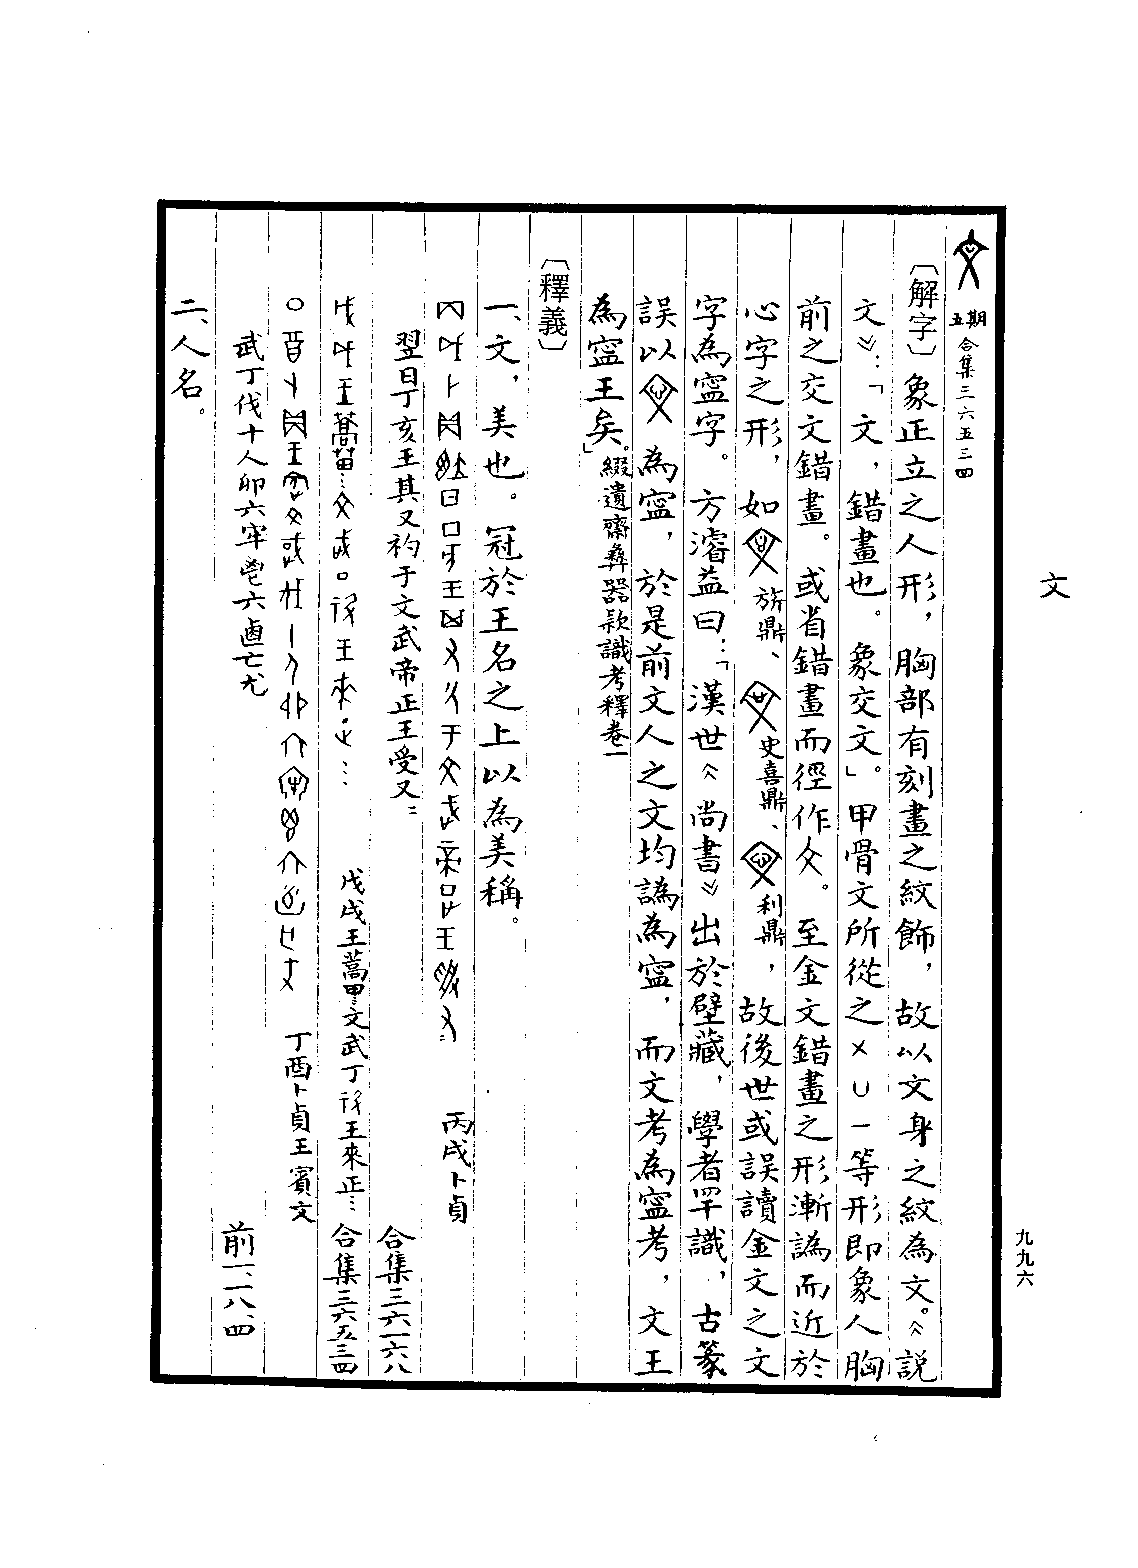 文
九九六
五期 合集三六五三四
〔解字〕象正立之人形，胸部有刻畫之紋飾，故以文身之紋為文。《說
文》：「文，錯畫也。象交文」。甲骨文所從之×∪一等形即象人胸
前之交文錯畫。或省錯畫而徑作文。至金文錯畫之形漸譌而近於
心字之形，如 旂鼎、 史喜鼎、 利鼎，故後世或誤讀金文之文
字為寍字。方濬益曰：「漢世《尚書》出於壁藏，學者罕識，古篆
誤以 為寍，於是前文人之文均譌為寍，而文考為寍考，文王
為寍王矣。」綴遺齋彝器款識考釋卷一
〔釋義〕
一、文，美也。冠於王名之上以為美稱。
丙戌卜貞
翌日丁亥王其又礿于文武帝正王受又＝ 合集三六一六八
戊戌王蒿田…文武丁 王來正… 合集三六五三四
丁酉卜貞王賓文
武丁伐十人卯六牢鬯六卣亡尤 前一、一八、四
二、人名。